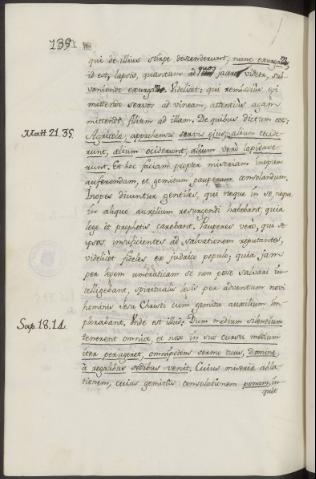 139
qui de illius stirpe descenderunt, nunc exurgam,
id est, lapsis, quantum ad
veniendo exurgam. Videlicet: qui
mittendo servos ad vineam, attentius agam
mittendo filium ad illam. De quibus dictum est:
Matt 21.35.
Agricolæ, apprehensis servis ejus, alium cecide
runt, alium occiderunt, alium verò lapidave
runt. Et hoc faciam propter miseriam inopum
auferendam, et gemitum pauperum consolandum.
Inopes dicuntur gentiles, qui neque in se, neque
in alique auxilium resurgendi habebant, quia
lege et prophetis carebant. Pauperes vero, qui se
ipsos, insuficientes ad salvationem reputantes,
videlicet fideles ex judaico populo; quia jam
per legem umbraticam se non posse salvari in
telligebant, spiritualis opis per adventum novi
hominis Jesu Christi cum gemitu auxilium im
plorabant. Unde est illud:
Sap. 18.14.
Dum medium silentium
tenerent omnia, et nox in suo cursu medium
iter perageret, omnipotens sermo tuus, Domine,
à regalibus sedibus venit. Cujus miseriæ abla
tionem, cujus gemitus consolationem ponam, in
quit